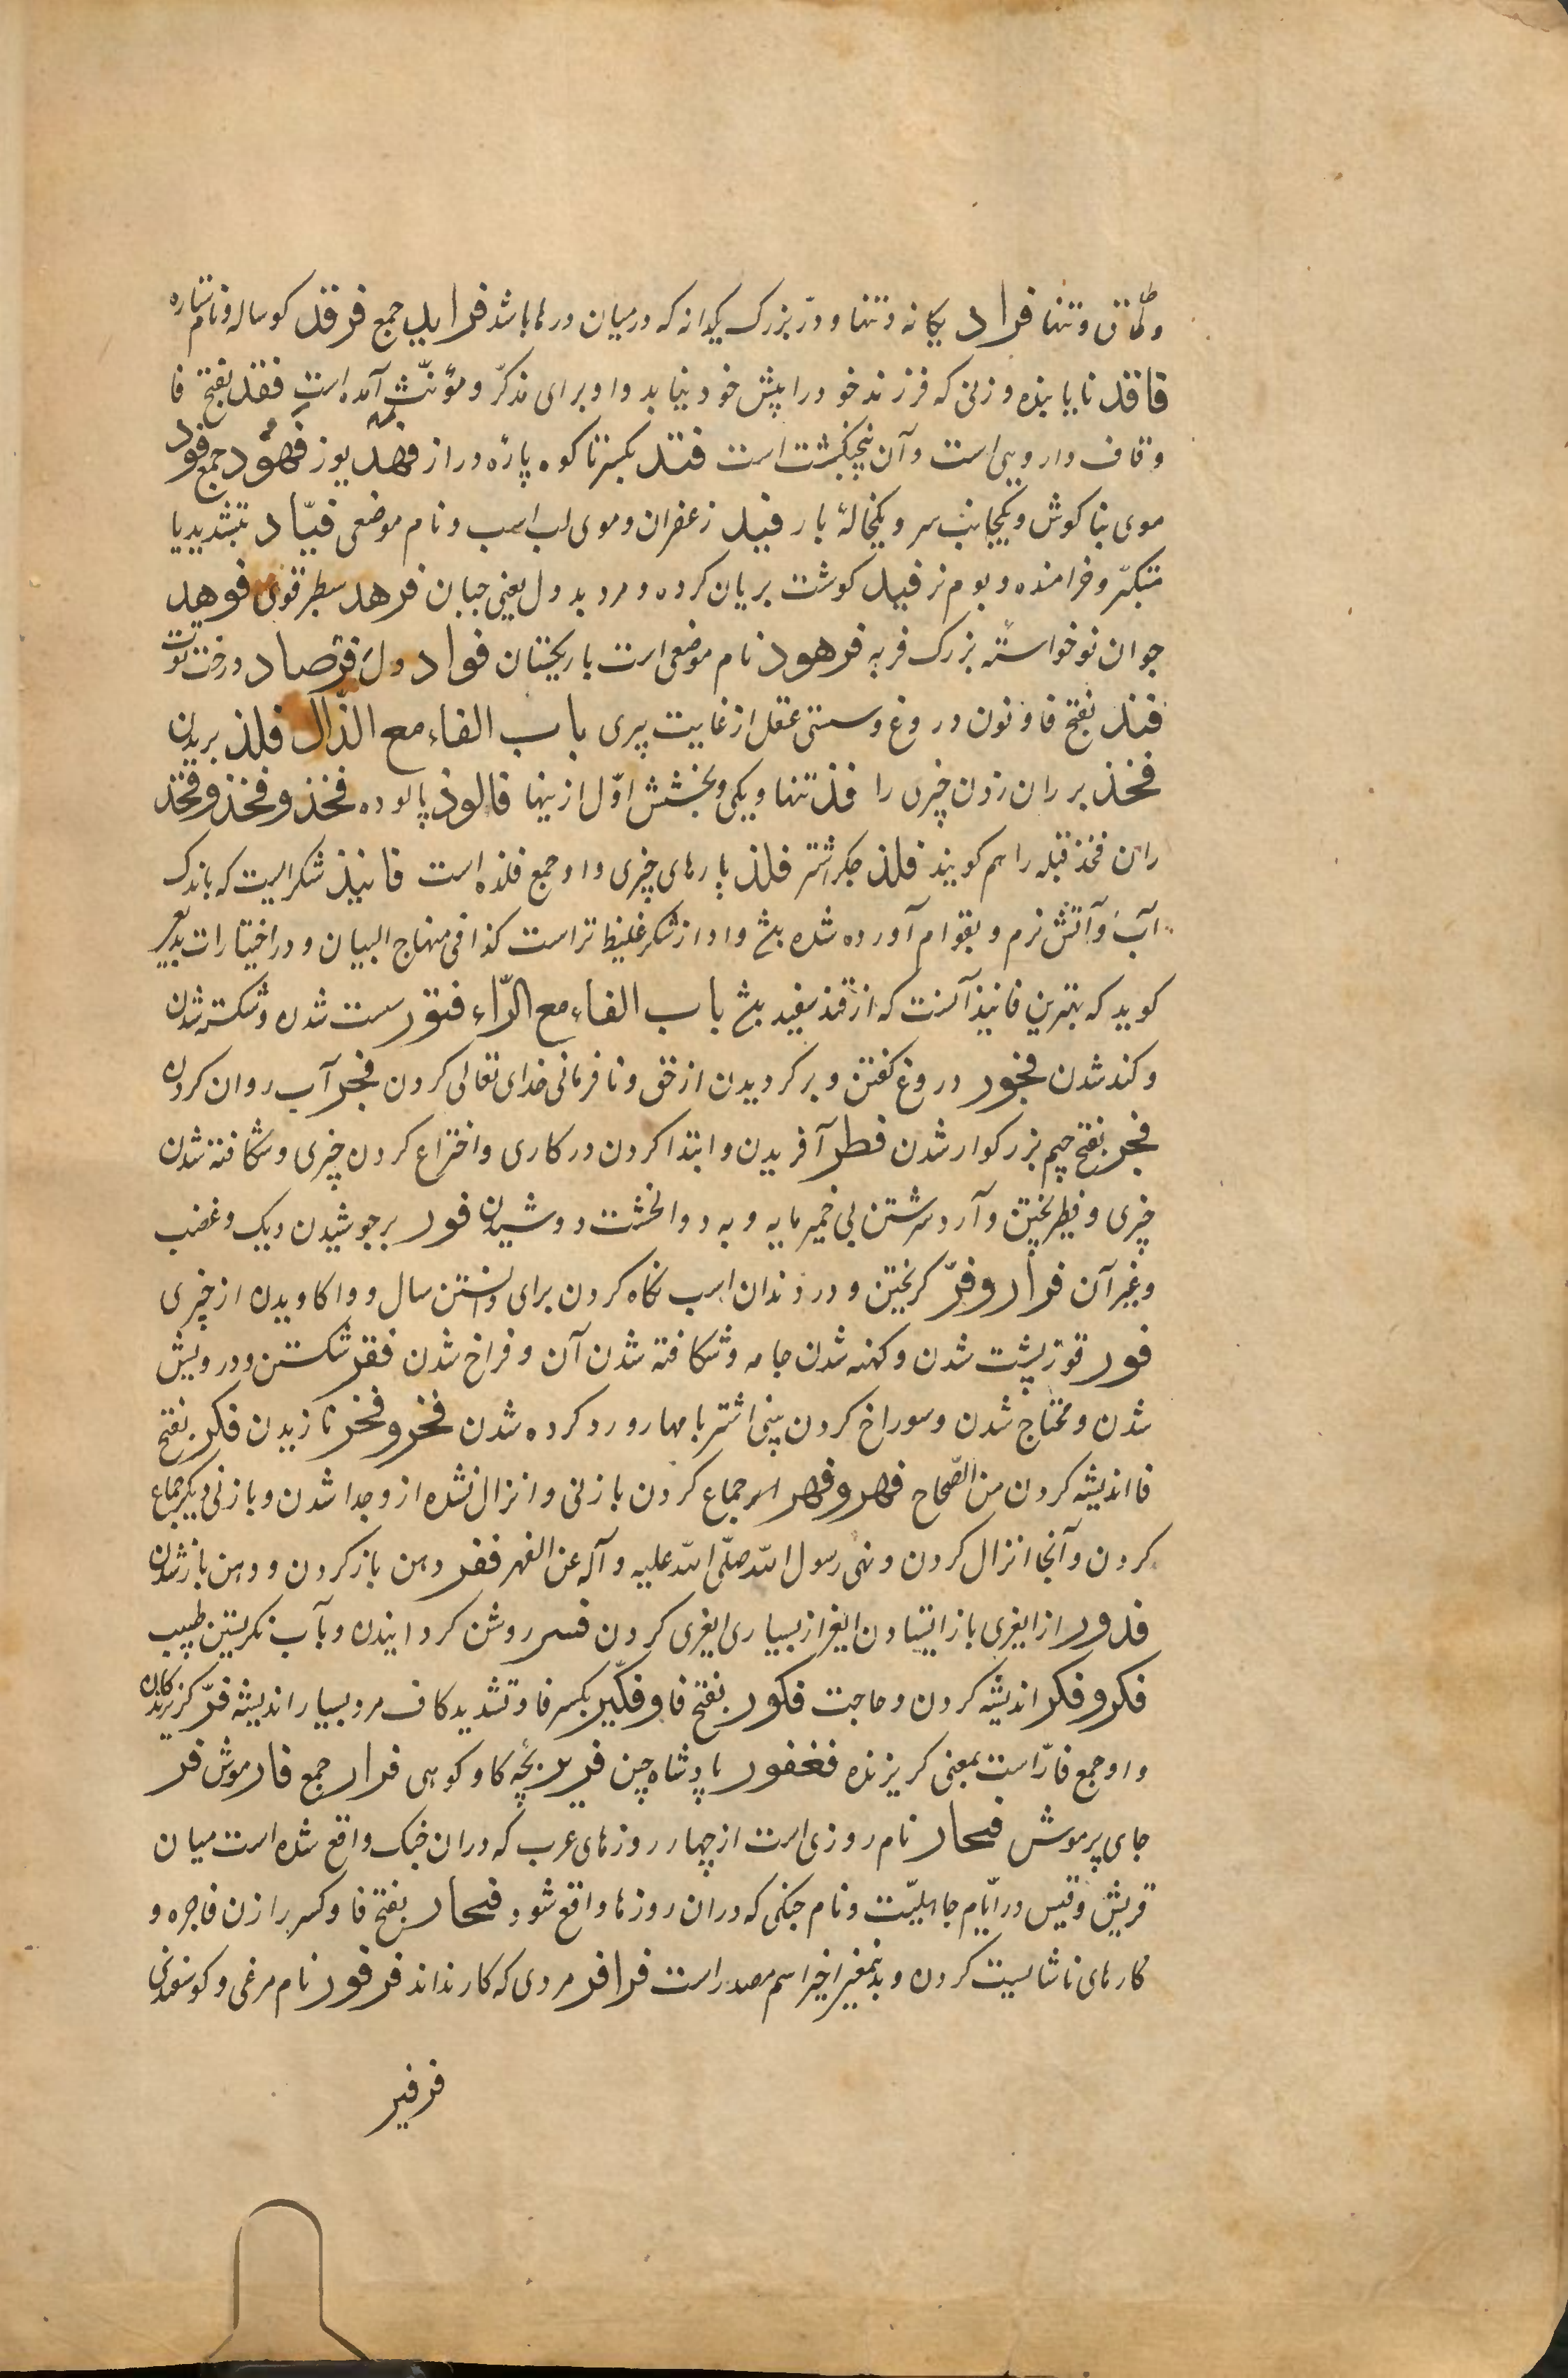 و طاق و تنها فراد یکانه و تنها و درّ بزرک یکدانه که در میان درها باشد فراید جمع فرقد کوساله و نام ستاره
فاقد نایابنده و زنی که فرزند خود را پیش خود نیابد و او برای مذکّر و مؤنّث آمده است فقد بفتح فا
و قاف دارویی است و آن پنجنکشت است فند بکسر فا کوه پارهٔ دراز فهد یوز فهود جمع فود
موی بناکوش و یکجانب سر و یکخالهٔ بار فید زعفران و موی لب اسب و نام موضعی فیّاد بتشدید یا
متکبّر و خرامنده و بوم نر فیید کوشت بریان کرده و مرد بددل یعنی جبان فرهد سطبر قوی فوهد
جوان نوخواستهٔ بزرک فربه فرهود نام موضعی است باریکستان فواد دل فرصاد درخت توت
فند بفتح فا و نون دروغ و سستی عقل از غایت پیری باب الفاء مع الذّال فلذ بریدن
فخذ بر ران زدن چیزی را فذ تنها و یکی و بخشش اوّل ازینها فالوذ پالوده فخذ و فخذ و فخذ
ران فخذ قبله را هم کویند فلذ جکر اشتر فلذ پارهای چیزی و او جمع فلذه است فانیذ شکر است که باندک
آب و آتش نرم و بقوام آورده شده بشٓ و او از شکر غلیظ تر است کذا فی منهاج البیان و در اختیارات بدیعی
کوید که بهترین فانیذ آنست که از قند سفید بشٓ باب الفاء مع الرّاء فتور سست شدن و شکسته شدن
و کند شدن فجور دروغ کفتن و برکردیدن از حق و نافرمانی خدای تعالی کردن فجر آب روان کردن
فجر بفتح جیم بزرکوار شدن فطر آفریدن و ابتدا کردن در کاری و اختراع کردن چیزی و شکافته شدن
چیزی و فطیر پختن و آرد سرشتن بی خمیر مایه و به دو انکشت دوشیدن فور برجوشیدن دیک و غضب
و غیر آن فرار و فرّ کریختن و در دندان اسب نکاه کردن برای دانستن سال و واکاویدن از چیزی
فور قوز پشت شدن و کهنه شدن جامه و شکافته شدن آن و فراخ شدن فقر شکستن و درویش
شدن و محتاج شدن و سوراخ کردن بینی اشتر با مهار و رد کرده شدن فخر و فخر نازیدن فکر بفتح
فا اندیشه کردن من الصّحاح فهر و فهر جماع کردن با زنی و انزال نشده ازو جدا شدن و با زنی دیکر جماع
کردن و آنجا انزال کردن و نهی رسول الله صلّی الله علیه و آله عن الفهر فغر دهن باز کردن و دهن باز شدن
فدور از ایغری باز ایستادن ایغر از بسیاری ایغری کردن فسر روشن کردانیدن و بآب نکریستن طبیب
فکر و فکر اندیشه کردن و حاجت فکور بفتح فا و فکّیر بکسر فا و تشدید کاف مرد بسیار اندیشه فرّ کریزندکان
و او جمع فارّ است بمعنی کریزنده فغفور پادشاه چین فریر بچّه کاو کوهی فرار جمع فار موش فر
جای پر موش فجار نام روزی است از چهار روزهای عرب که در ان جنک واقع شده است میان
قریش و قیس در ایّام جاهلیّت و نام جنکی که در ان روزها واقع شود فجار بفتح فا و کسر را زن فاجره و
کارهای ناشایست کردن و بدینمعنی اخیر اسم مصدر است فرافر مردی که کار نداند فرفور نام مرغی و کوسفندی
فرفیر